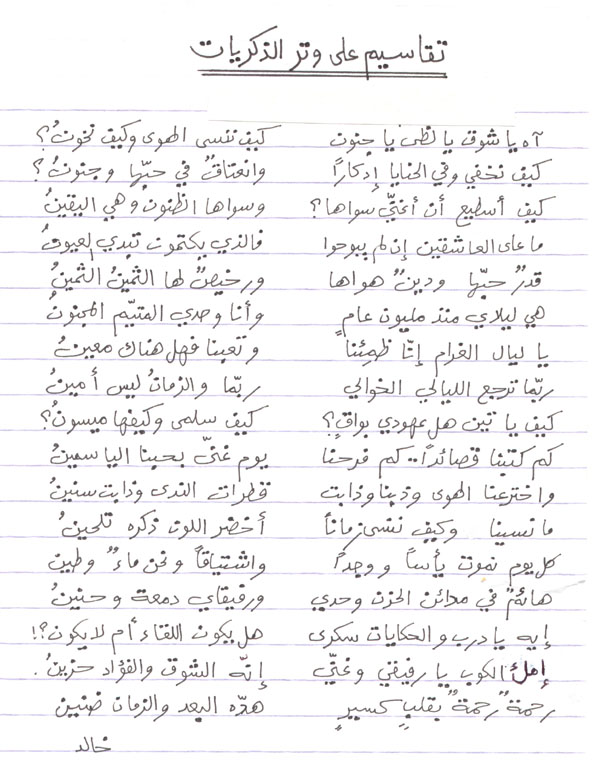 تقاسيم على وتر الذكريات
آه يا شوق يا لظى يا جنون كيف ننسى الهوى وكيف نخونُ؟
كيف نخفي وفي الحنايا إدكاراً وانعتاقٌ في حبّها وجنونُ؟
كيف أسطيع أن أغنّي سواها؟ وسواها الظنون وهي اليقينُ
ما على العاشقين إن لم يبوحوا فالذي يكتمون تبدي العيونُ
قدرٌ حبّها ودينٌ هواها ورخيصٌ لها الثمينُ الثمينُ
هي ليلاي منذ مليون عامٍ وأنا وحدي المتيّم المجنونُ
يا ليال الغرام إنّا ظمِئنا وتعبنا فهل هناك معينُ
ربّما ترجع الليالي الخوالي ربّما والزمانُ ليس أمينُ
كيف يا تين هل عهودي بواقٍ؟ كيف سلمى وكيفها ميسونُ؟
كم كتبنا قصائداً.. كم فرحنا يوم غنّى بحبنا الياسمينُ
واخترعنا الهوى وذبنا وذابت قطرات الندى وذابت سنينُ
ما نسينا وكيف ننسى زماناً أخضر اللون ذكره تلحينُ
كل يوم نموت يأساً ووجداً واشتياقاً ونحن ماءٌ وطين
هائمٌ في مدائن الحزن وحدي ورفيقاي دمعة وحنينُ
إيه يا درب والحكايات سكرى هل يكون اللقاء أم لا يكون؟!
إملئ الكوب يا رفيقي وغنّي إنّه الشوق والفؤاد حزينُ.
رحمةً رحمةً بقلبٍ كسيرٍ هدّه البعد والزمان ضنين
خالد